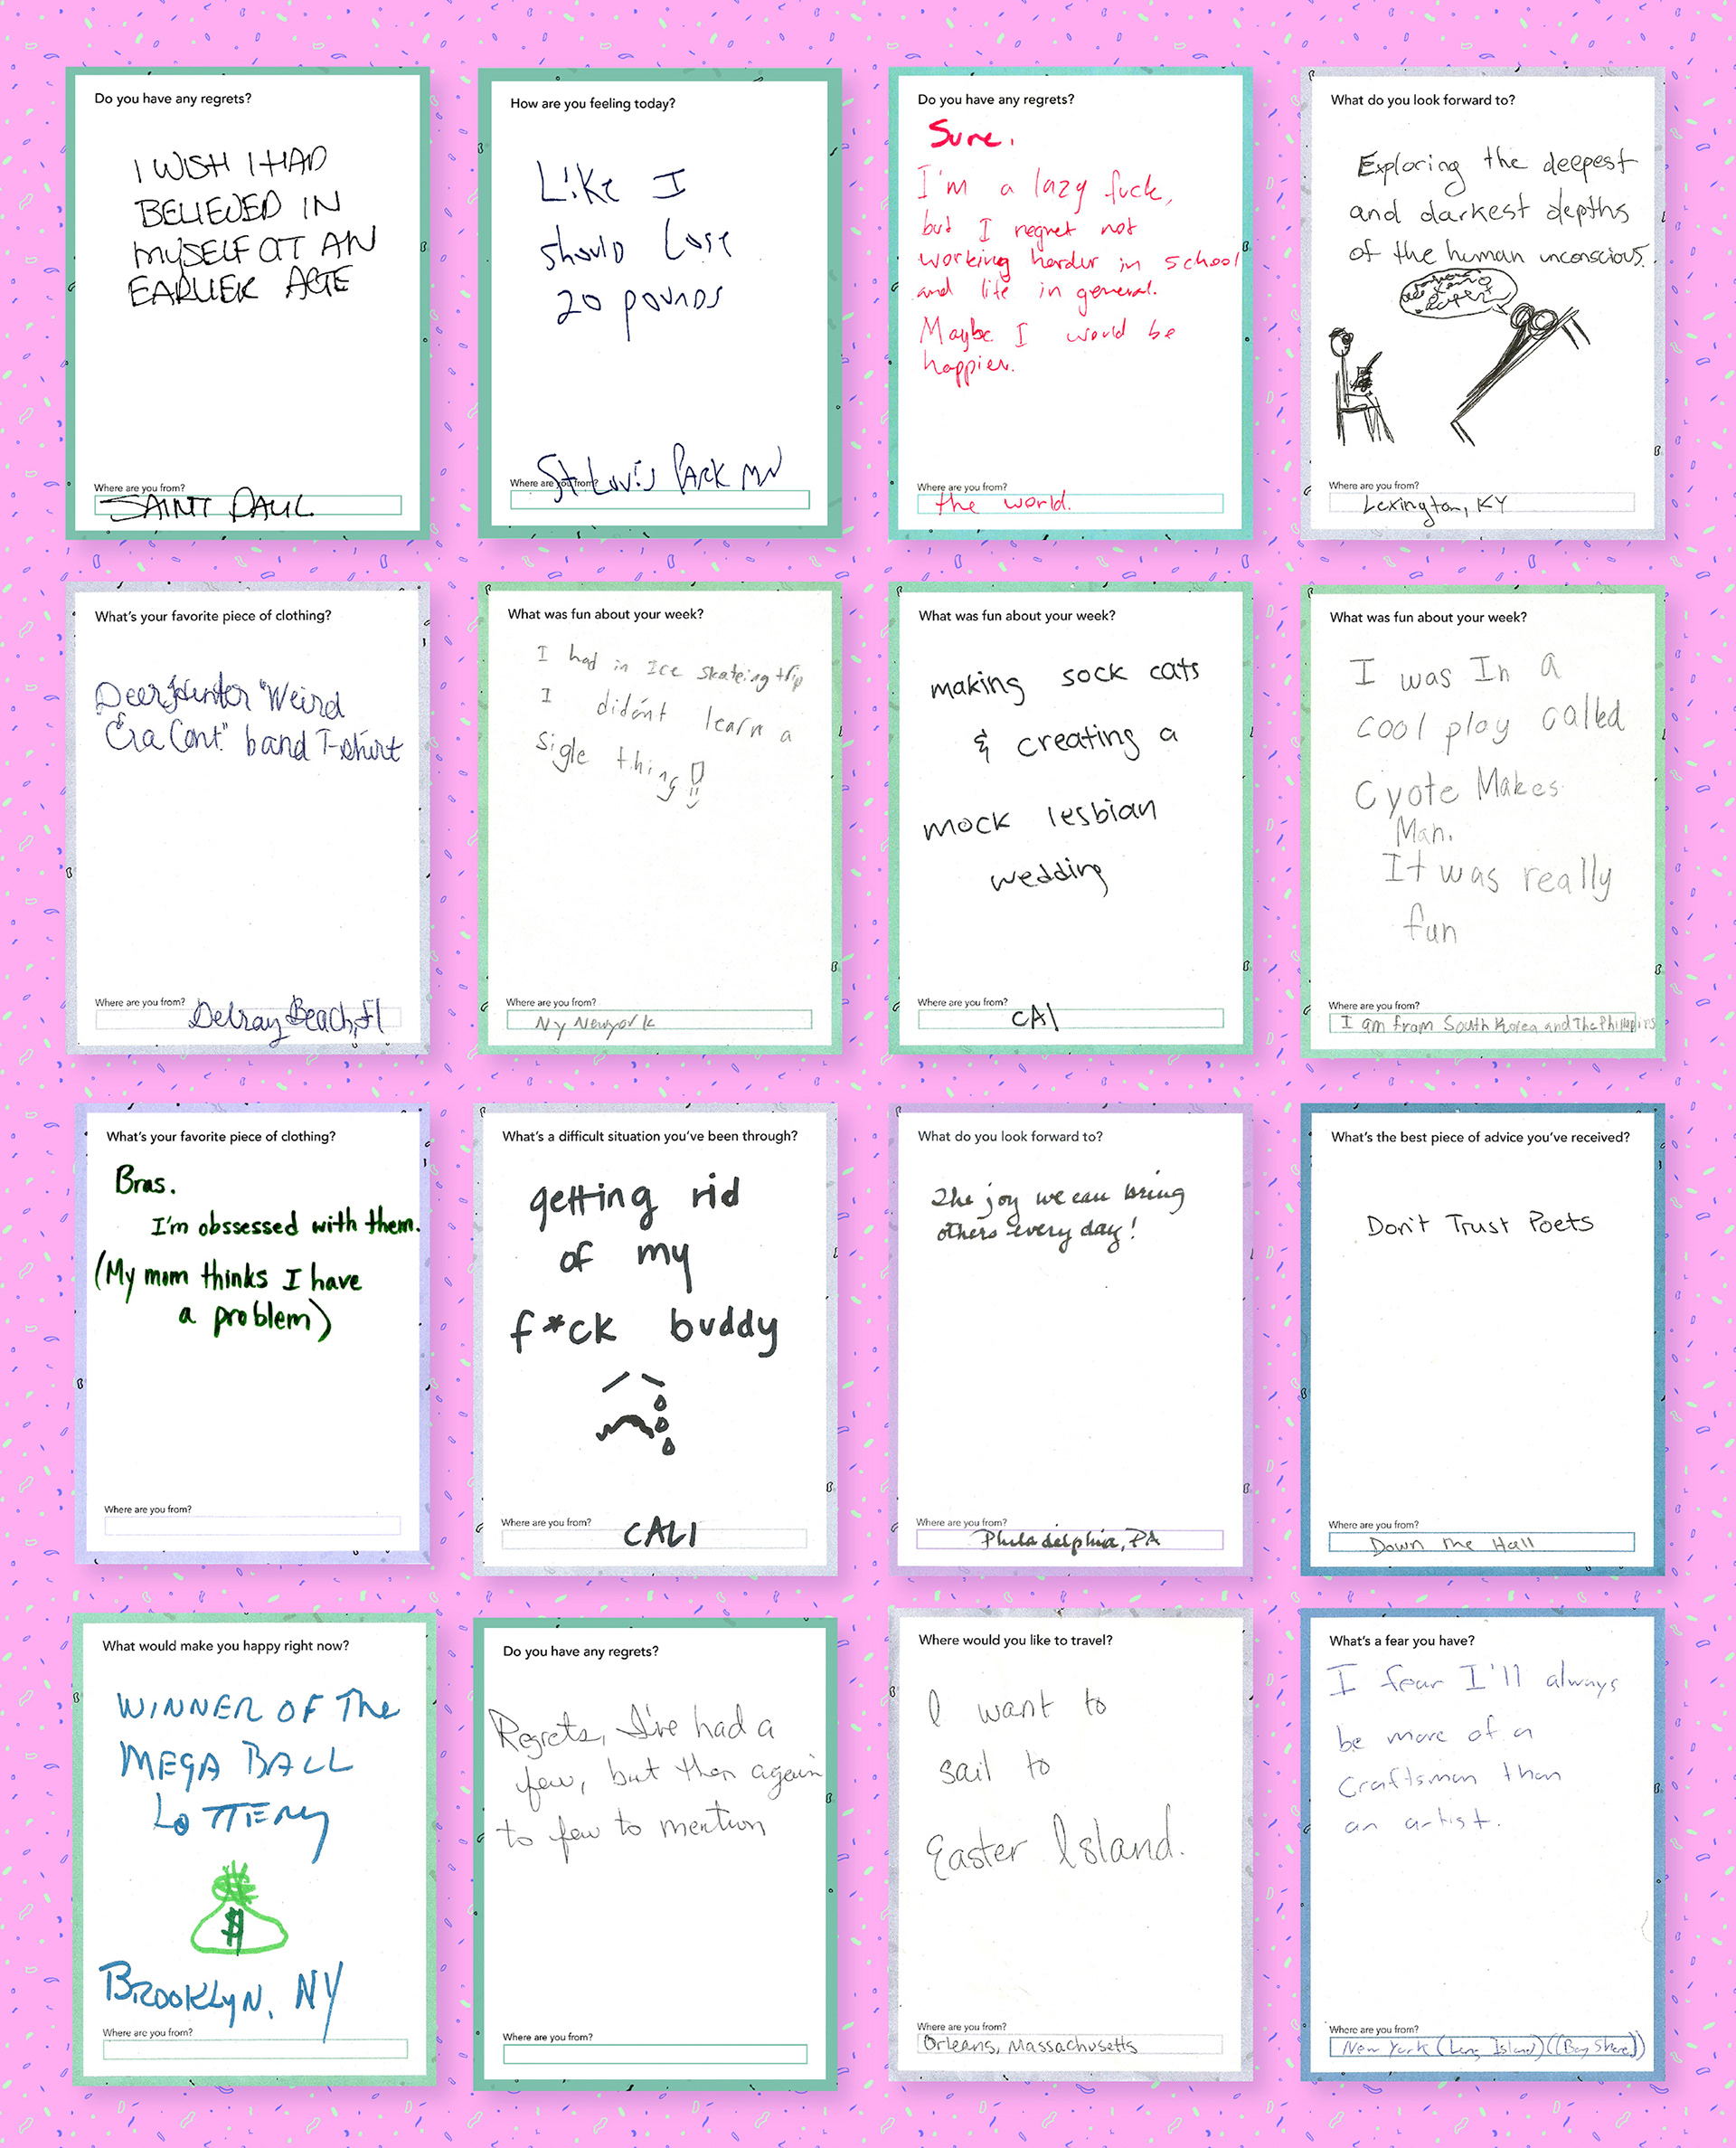 Do you have any regrets?
I WISH I HAD
BELIEVED IN
MYSELF AT AN
EARLIER AGE
Where are you from?
SAINT PAUL
How are you feeling today?
Like I
should Lose
20 pounds
Where are you from?
St. Louis Park MN
Do you have any regrets?
Sure.
I'm a lazy fuck,
but I regret not
working harder in school
and life in general.
Maybe I would be
happier.
Where are you from?
the world.
What do you look forward to?
Exploring the deepest
and darkest depths
of the human unconscious.
Where are you from?
Lexington, KY
What's your favorite piece of clothing?
Deerhunter "Weird
Era Cont." band T-shirt
Where are you from?
Delray Beach, Fl
What was fun about your week?
I had in Ice skateing trip
I didént learn a
sigle thing!!
Where are you from?
Ny Newyork
What was fun about your week?
making sock cats
& creating a
mock lesbian
wedding
Where are you from?
CAl
What was fun about your week?
I was In a
cool play called
Cyote Makes
Man.
It was really
fun
Where are you from?
I am from South Korea and The
What's your favorite piece of clothing?
Bras.
I'm obssessed with them.
(My mom thinks I have
a problem)
Where are you from?
What's a difficult situation you've been through?
getting rid
of my
f*ck buddy
Where are you from?
CALI
What do you look forward to?
The joy we can bring
others every day!
Where are you from?
Philadelphia, PA
What's the best piece of advice you've received?
Don't Trust Poets
Where are you from?
Down the Hall
What would make you happy right now?
WINNER OF The
MEGA BALL
LOTTERY
$
BROOKLYN, NY
Where are you from?
Do you have any regrets?
Regrets, I've had a
few, but then again
to few to mention
Where are you from?
Where would you like to travel?
I want to
sail to
Easter Island.
Where are you from?
Orleans, Massachusetts
What's a fear you have?
I fear I'll always
be more of a
craftsman than
an artist.
Where are you from?
New York (Long Island) ((Bay Shore))